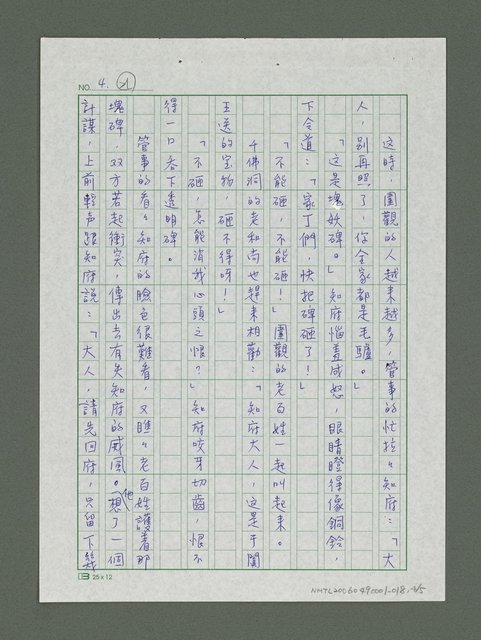 NO. 4. 21
這時，圍觀的人越來越多，管事的忙拉々知府：「大
人，別再照了，你全家都是毛驢。
「這是塊妖碑。」知府惱羞成怒，眼睛瞪得像銅鈴，
下令道：「家丁們，快把碑砸了！」
「不能砸，不能砸！」圍觀的老百姓一起叫起來。
千佛洞的老和尚也趕來相勸：「知府大人，這是于闐
王送的宝物，砸不得呀！」
「不砸，怎能消我心頭之恨？」知府咬牙切齒，恨不
得一口吞下透明碑。
管事的看々知府的臉色很難看，又瞧々老百姓護着那
塊碑，双方若起衝突，傳出去有失知府的威風。他想了一個
計謀，上前輕声跟知府說：「大人，請先回府，只留下幾
25×12
NMTL20060490001-018